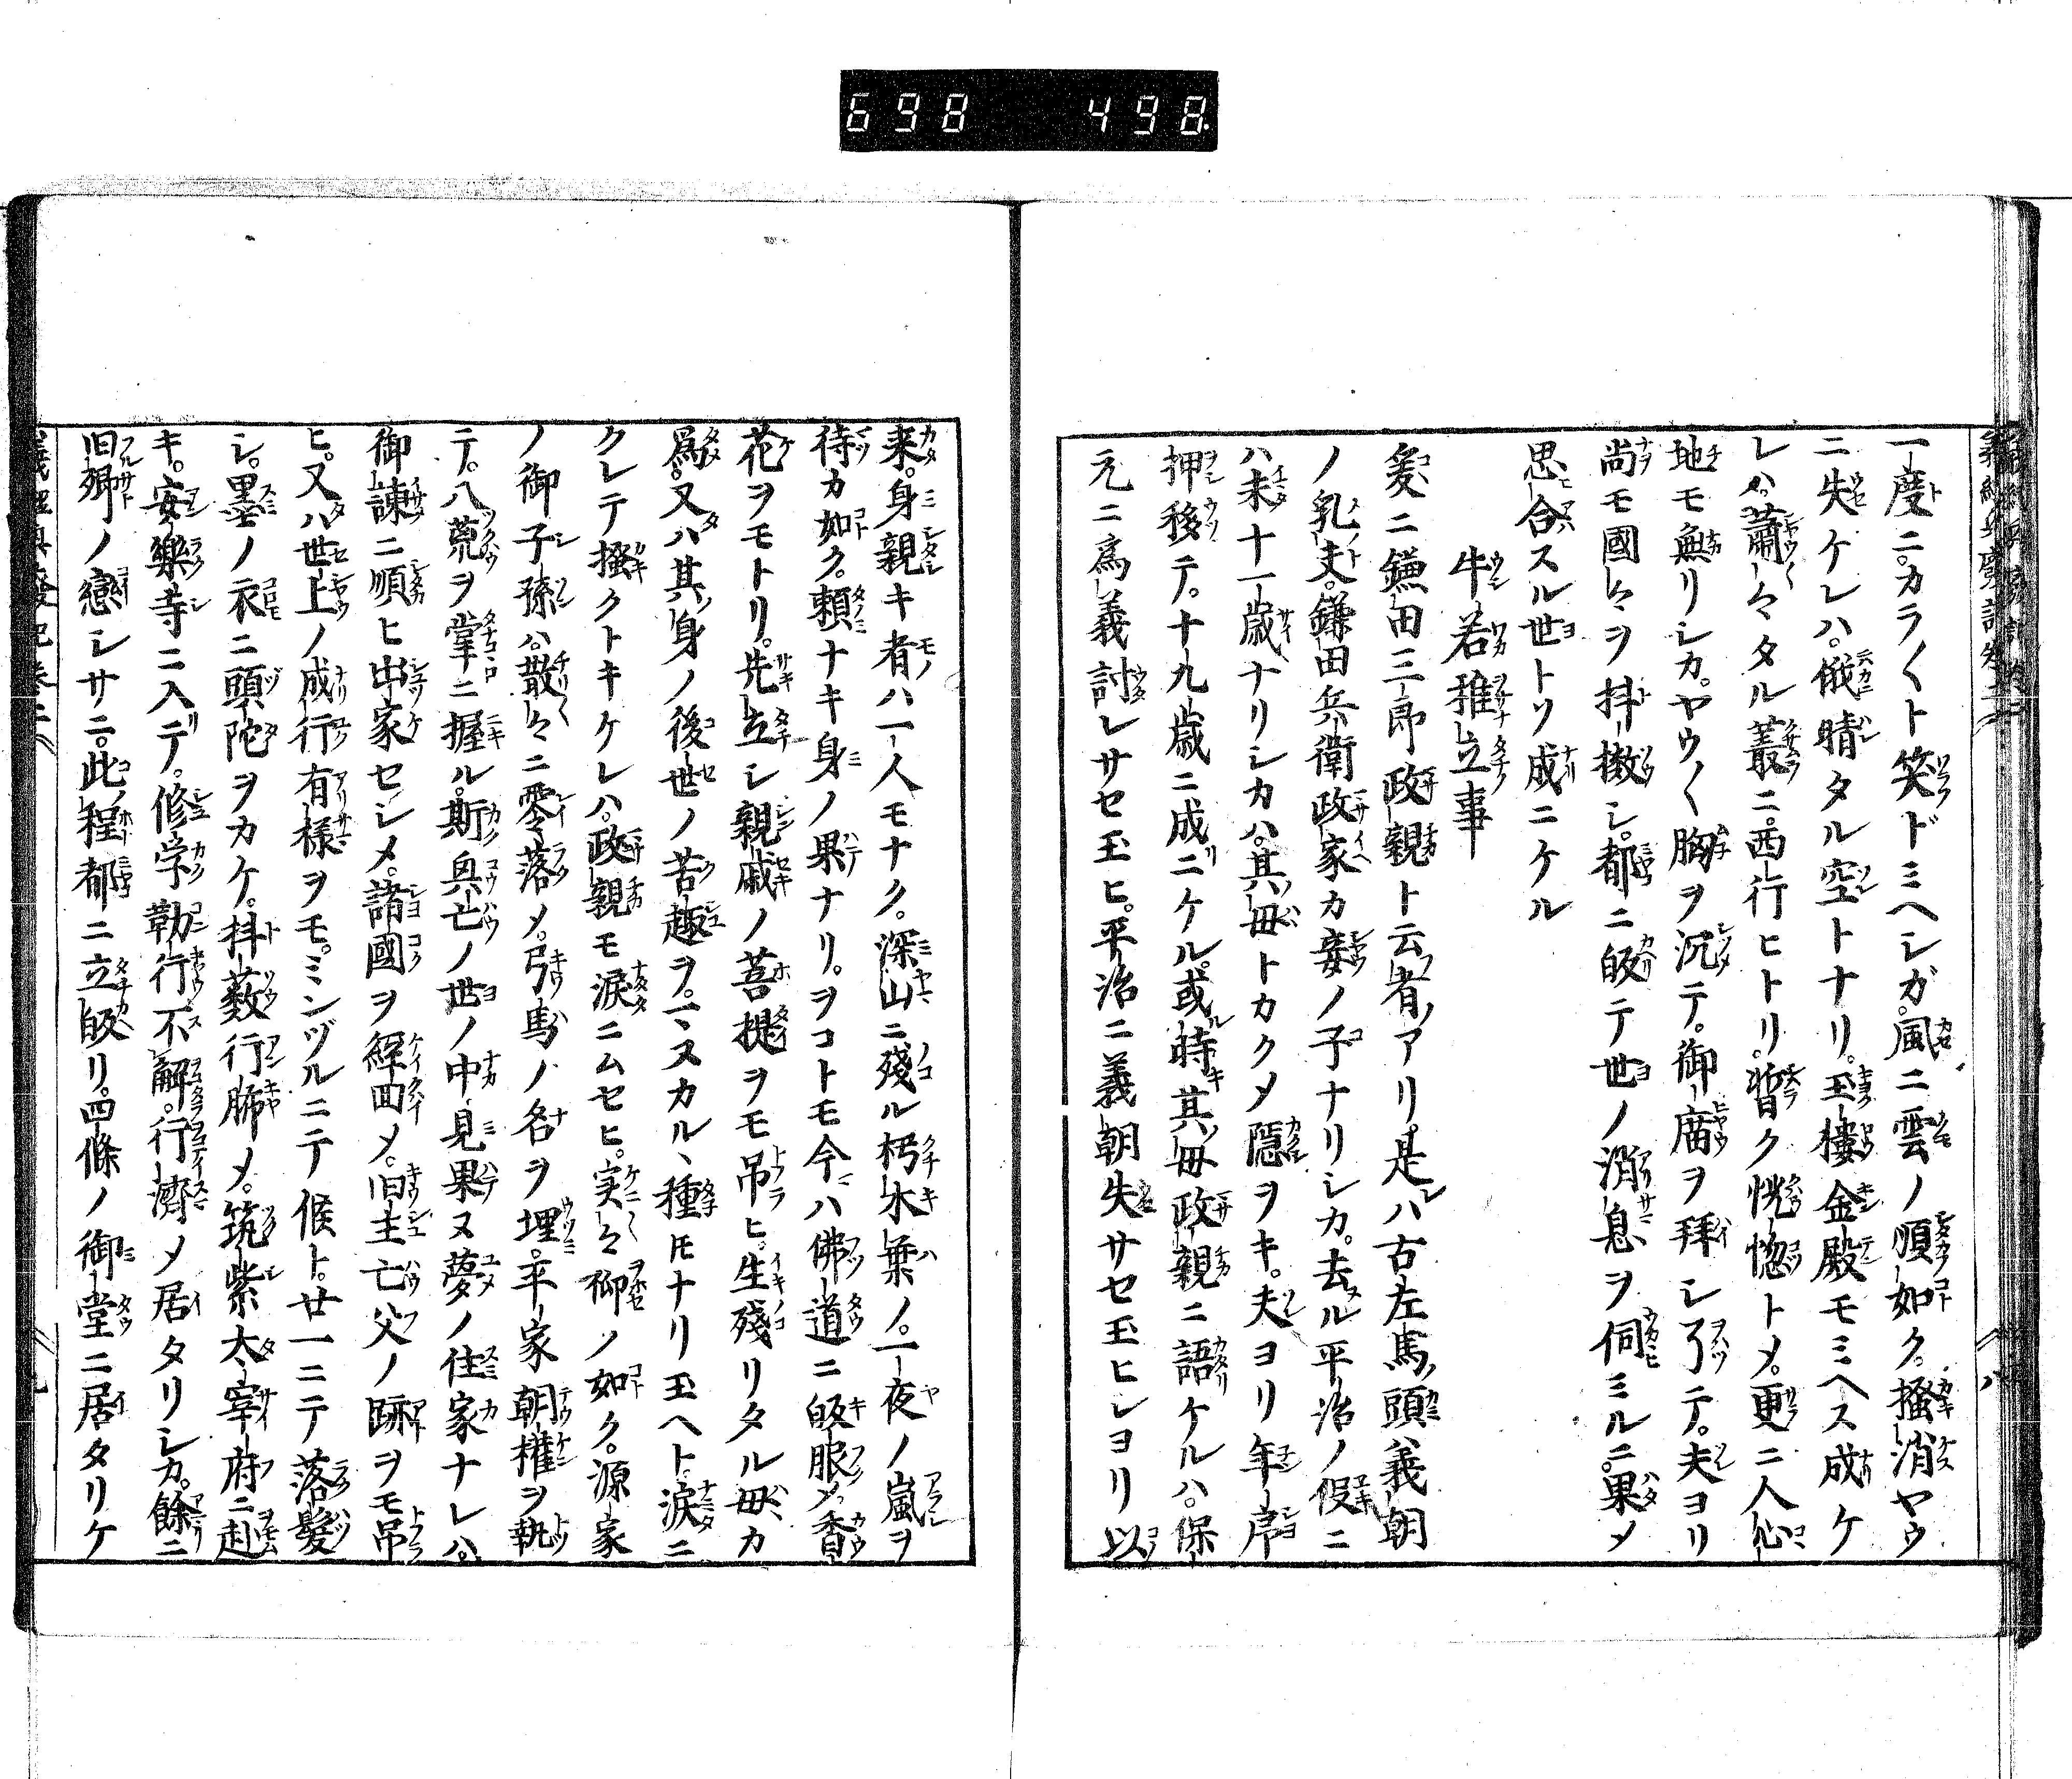 698 498
一度ニ。カラ〱ト笑ドミヘシガ。風ニ雲ノ順如ク。掻消ヤウ
ニ失ケレハ。俄晴タル空トナリ。玉樓金殿モミヘス成ケ
レハ。蕭々タル叢ニ。西行ヒトリ。暫ク恍惚トメ。更ニ人心
地モ無リシカ。ヤウ〱胸ヲ沉テ。御廟ヲ拜シ了テ。夫ヨリ
尚モ國々ヲ抖擻シ。都ニ皈テ世ノ消息ヲ伺ミルニ。果メ
思合スル世トソ成ニケル
牛若推立事
爰ニ鎌田三郎政親ト云者アリ。是ハ古左馬頭義朝
ノ乳夫。鎌田兵衛政家カ妾ノ子ナリシカ。去ル平治ノ役ニ
ハ未十一歳ナリシカハ。其母トカクメ隠ヲキ。夫ヨリ年序
押移テ。十九歳ニ成ニケル。或時其母政親ニ語ケルハ。保
元ニ為義討レサセ玉ヒ。平治ニ義朝失サセ玉ヒシヨリ以
来。身親キ者ハ一人モナク。深山ニ殘ル朽木葉ノ。一夜ノ嵐ヲ
待カ如ク。頼ナキ身ノ果ナリ。ヲコトモ今ハ佛道ニ皈服メ。香
花ヲモトリ。先立シ親戚ノ菩提ヲモ吊ヒ。生殘リタル毋カ
爲。又ハ其身ノ後世ノ苦趣ヲ。一ヽヌカルヽ種𪜈ナリ玉ヘト。涙ニ
クレテ掻クトキケレハ。政親モ涙ニムセヒ。実々仰ノ如ク。源家
ノ御子孫ハ。散々ニ零落メ。弓馬ノ名ヲ埋。平家朝權ヲ執
テ。八荒ヲ掌ニ握ル。斯興亡ノ世ノ中見果ヌ夢ノ住家ナレハ。
御諌ニ順ヒ出家セシメ。諸國ヲ經回メ。旧主亡父ノ跡ヲモ吊
ヒ。又ハ世上ノ成行有様ヲモ。ミンヅルニテ候ト。廿一ニテ落髪
シ。墨ノ衣ニ頭陀ヲカケ。抖藪行脚メ。筑紫太宰府ニ赴
キ。安樂寺ニ入テ。修学勤行不解。行濟メ居タリシカ。餘ニ
旧郷ノ戀シサニ。此程都ニ立皈リ。四條ノ御堂ニ居タリケ